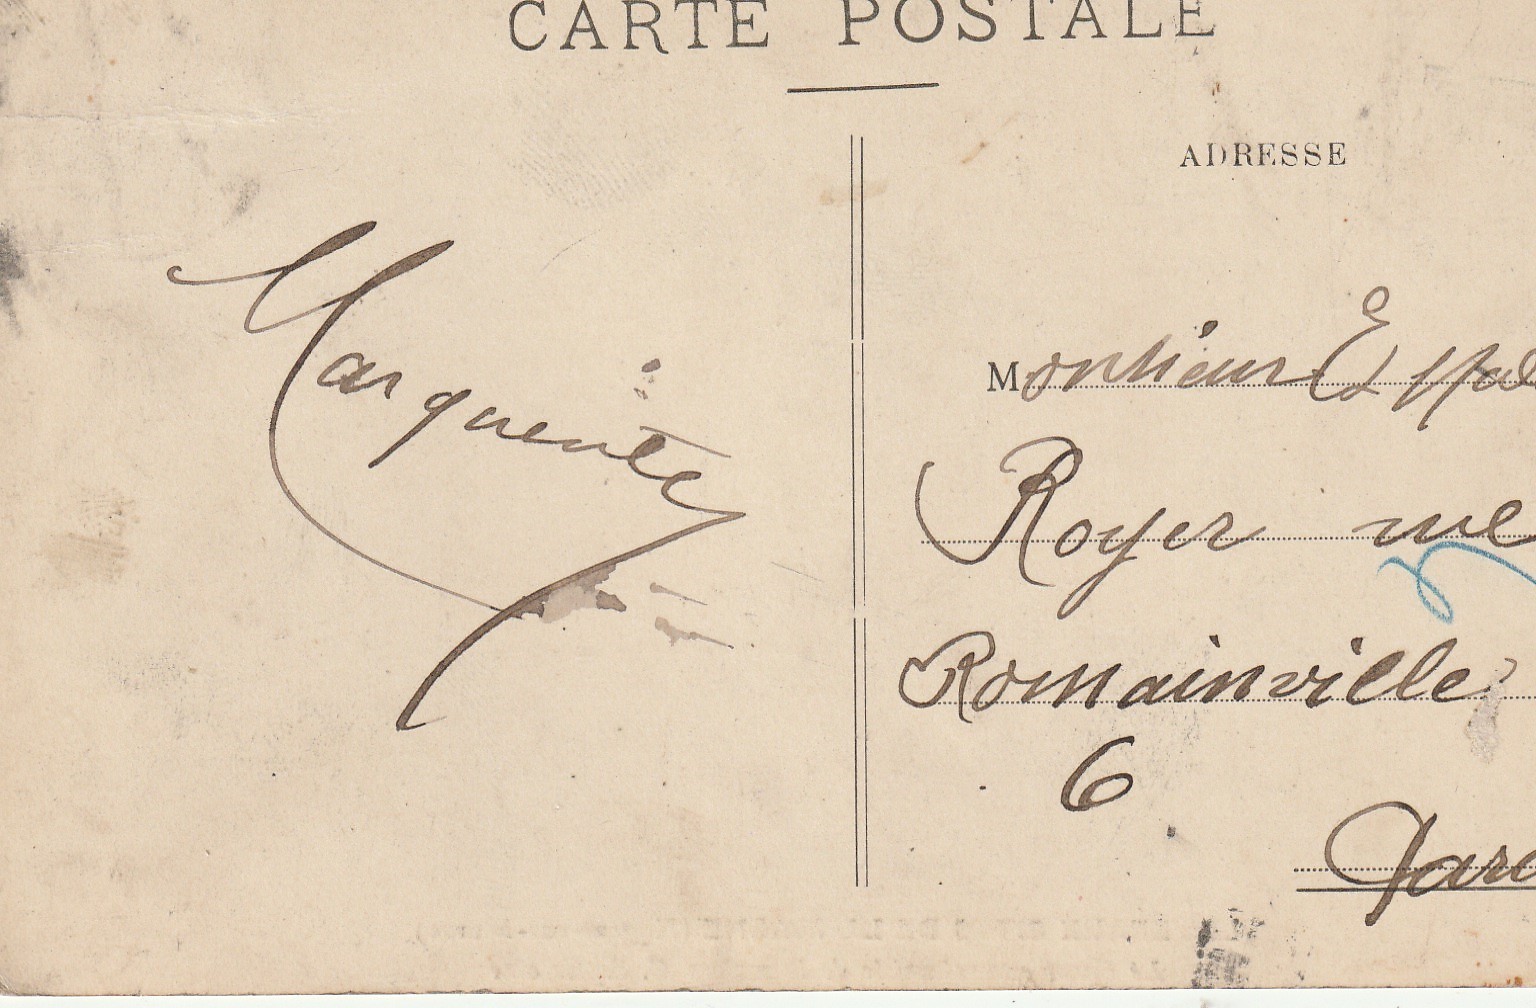 CARTE POSTALE
ADRESSE
Marguerite
Monsieur
Royer rue
Romainville
6